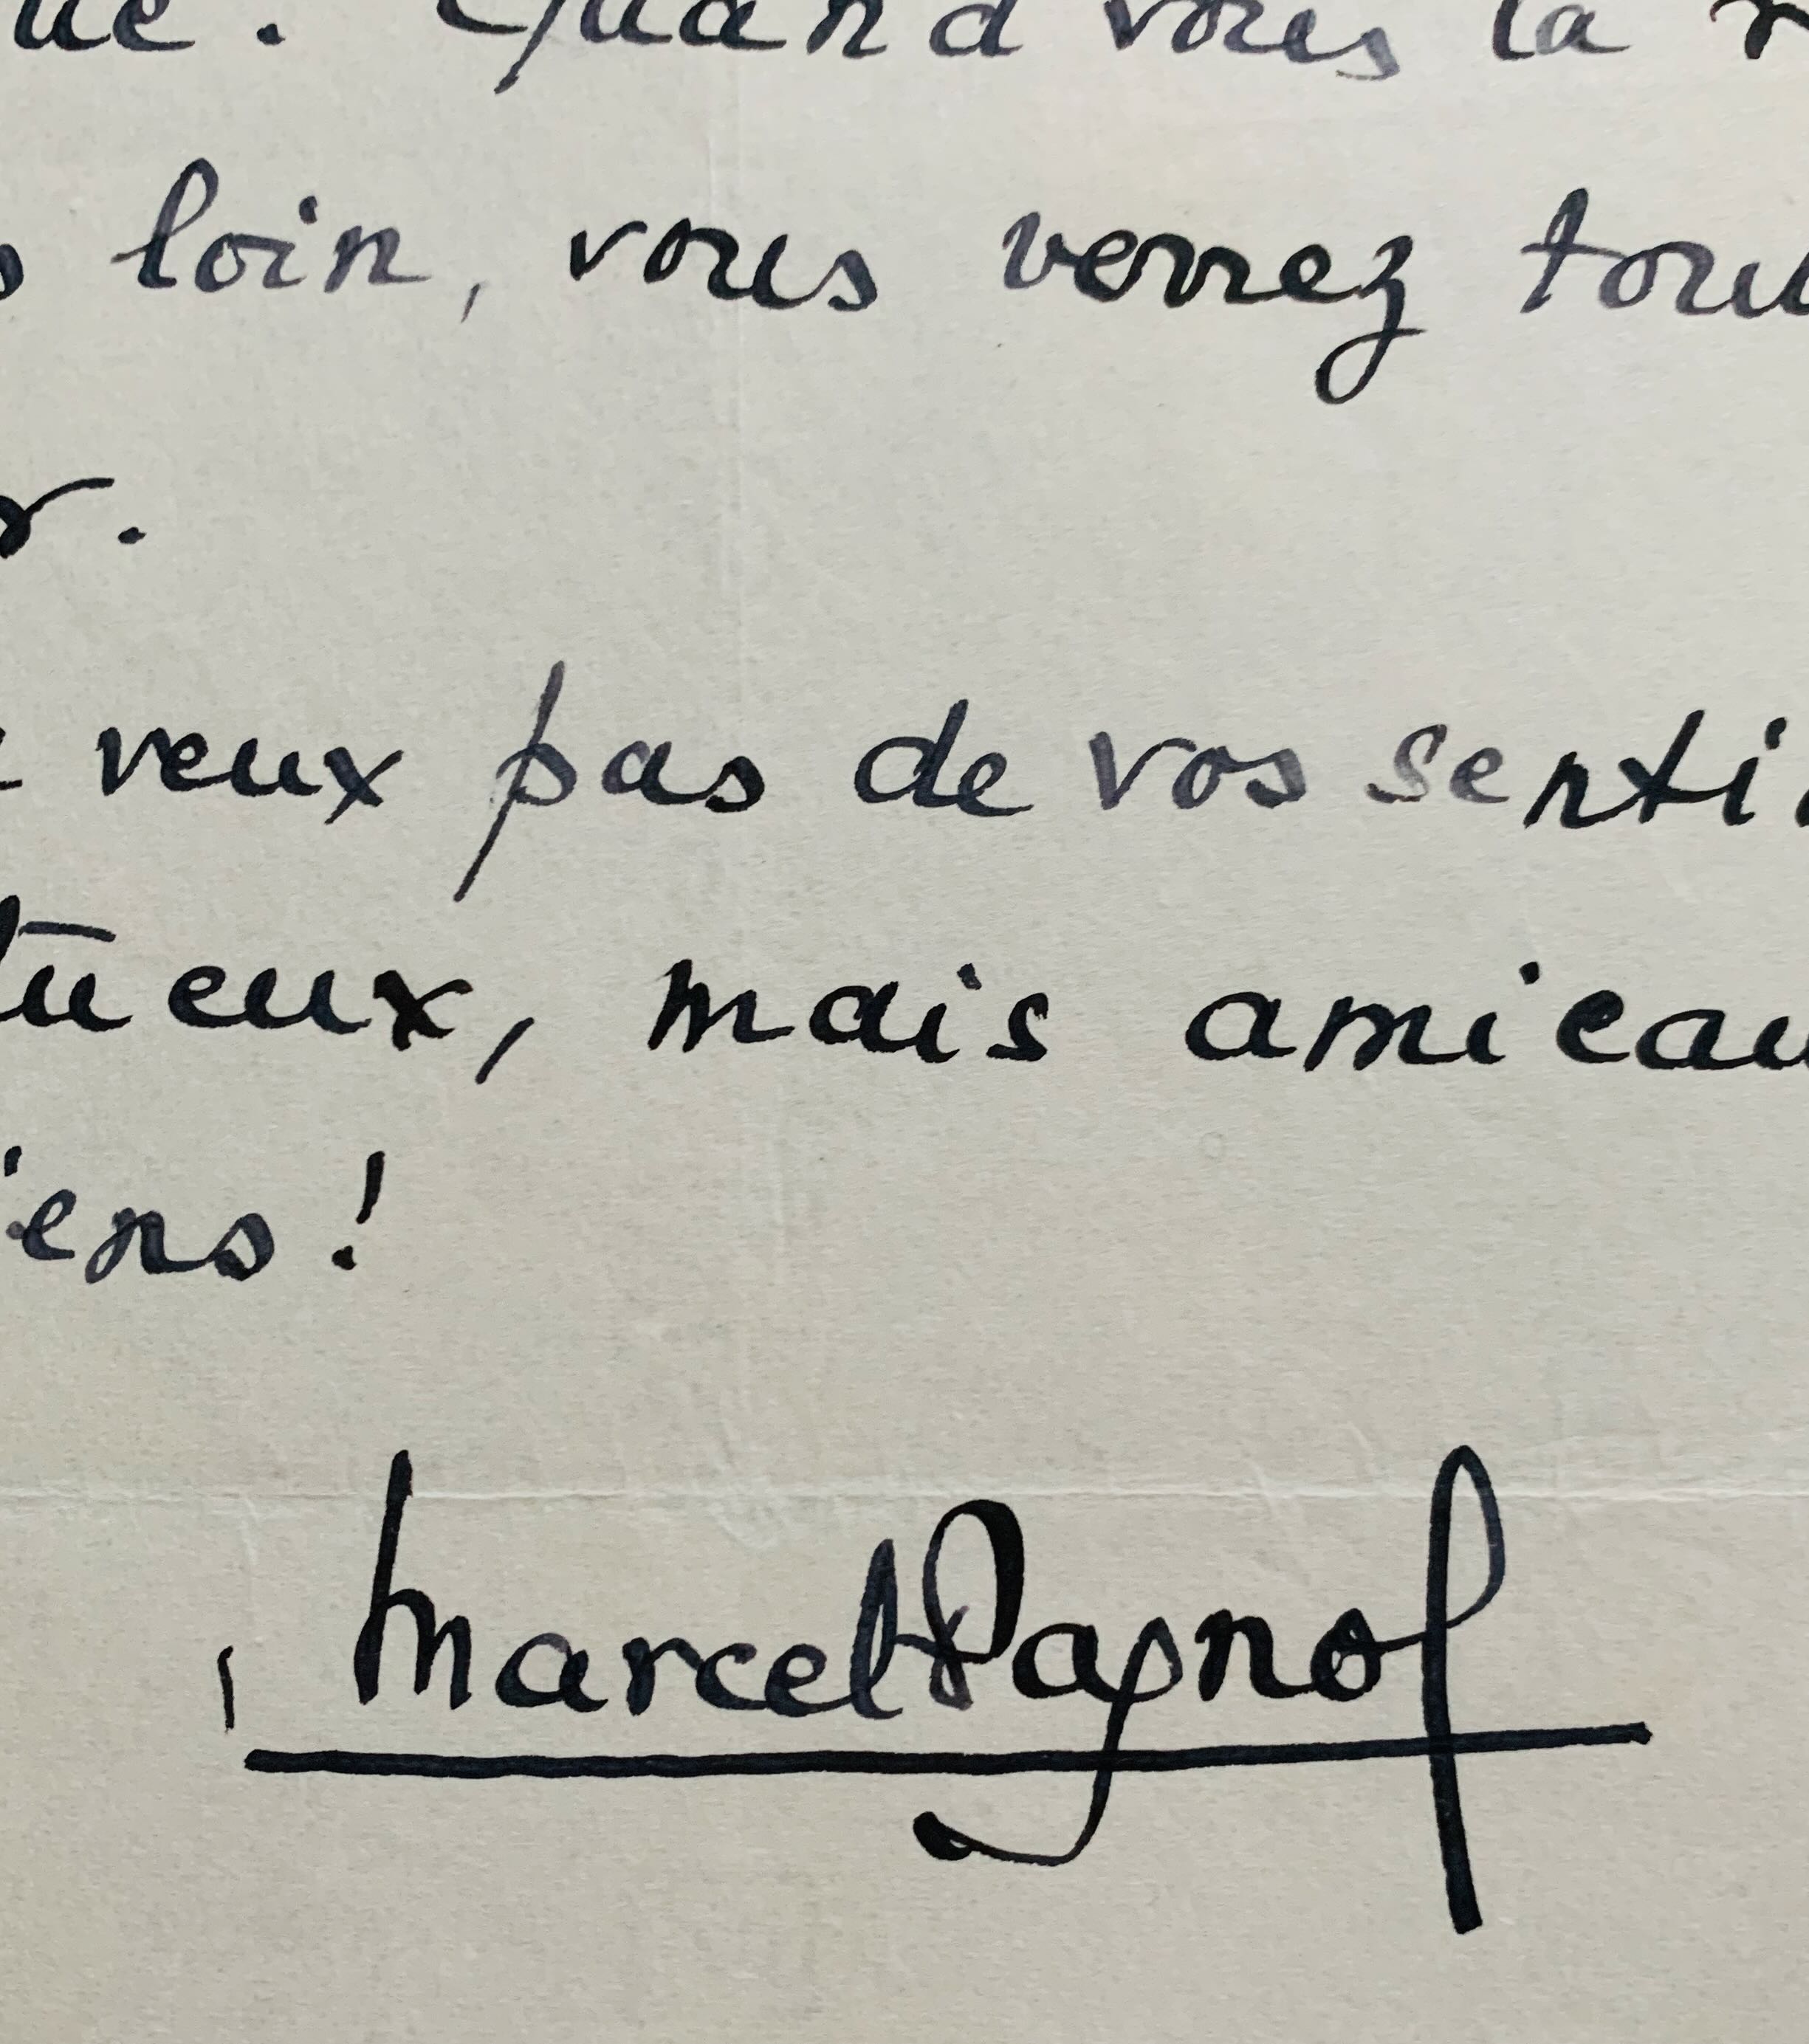 ue. Quand vous la r
s loin, vous verrez tout
r.
veux pas de vos senti
tueux, mais amicau
iens!
Marcel Pagnol